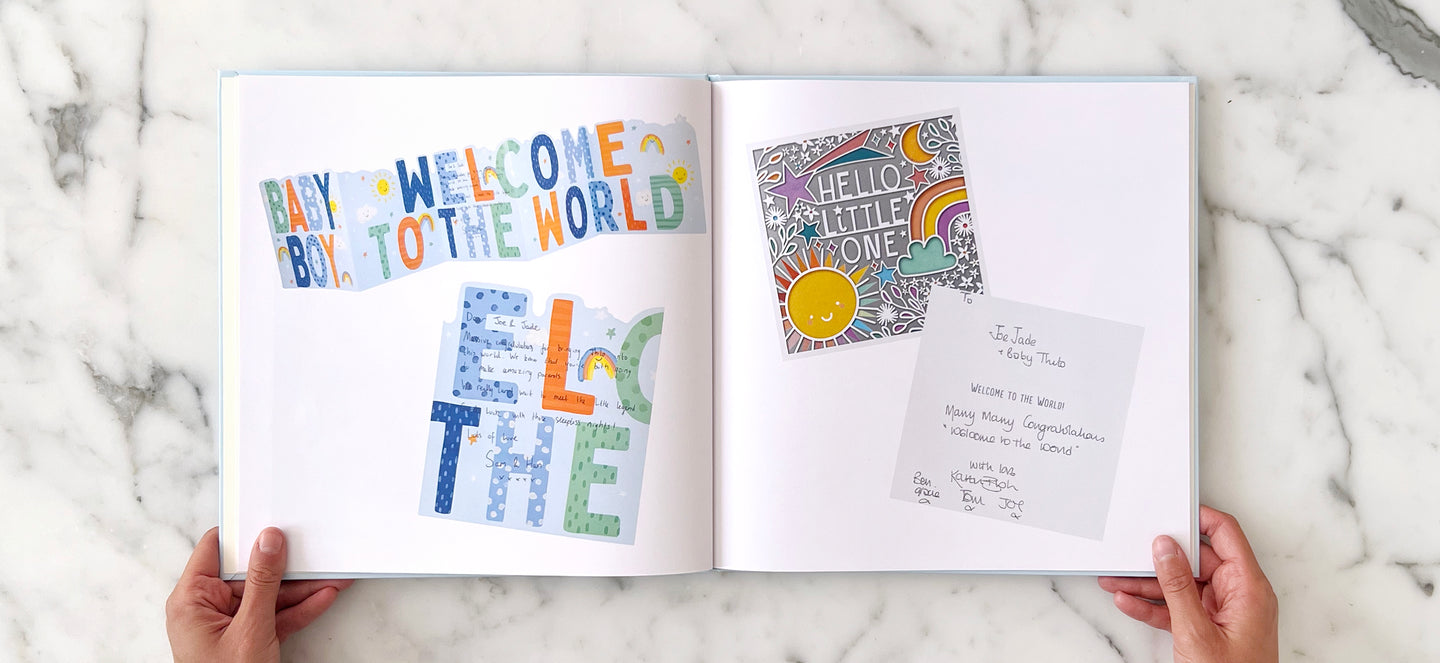 BABY
BOY
WELCOME
TO THE WORLD
ELC
THE
Dear Joe & Jade
Massive congratulations for bringing Thelo into
this world. We know that you're both going
to make amazing parents.
We really cant wait to meet the little legend
luck with those sleepless nights!
Lots of love
Sam & Han
x x x x
HELLO
LITTLE
ONE
To
Joe Jade
+ Baby Thelo
WELCOME TO THE WORLD!
Many Many Congratulations
"Welcome to the World"
with love
Ben
Gracie
Tom
Joe
x
x
x